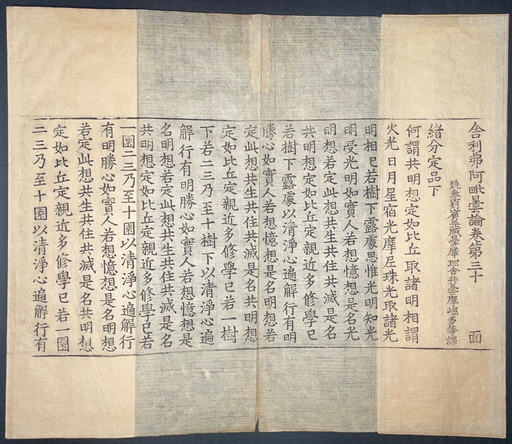 舍利弗阿毗曇論卷第三十 面
姚秦罽賓三藏曇摩耶舍共曇摩崛多等譯
緒分定品下
何謂共明想定如比丘取諸明相謂
火光日月星宿光摩尼珠光取諸光
明相已若樹下露處思惟光明知光
明受光明如實人若想憶想是名光
明想若定此想共生共住共滅是名
共明想定如比丘定親近多修學已
若樹下露處以清淨心遍解行有明
勝心如實人若想憶想是名明想若
定此想共生共住共滅是名共明想
定如比丘定親近多修學已若一樹
下若二三乃至十樹下以清淨心遍
解行有明勝心如實人若想憶想是
名明想若定此想共生共住共滅是名
共明想定如比丘定親近多修學已若
一園二三乃至十園以清淨心遍解行
有明勝心如實人若想憶想是名明想
若定此想共生共住共滅是名共明想
定如比丘定親近多修學已若一園
二三乃至十園以清淨心遍解行有